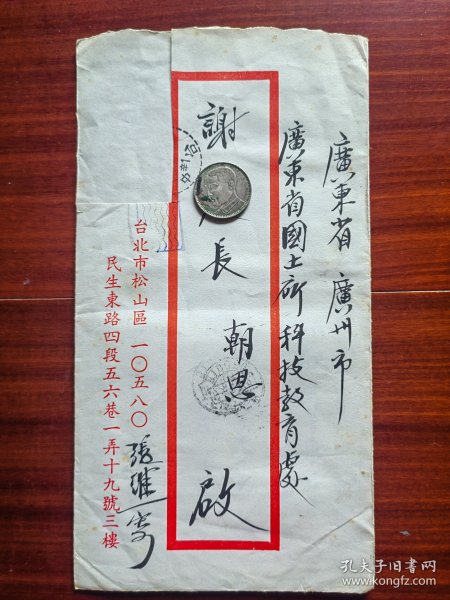 廣東省 廣州市
廣東省國土所科技教育處
謝 長 朝恩 啟
台北市松山區 一〇五八〇
民生東路四段五六巷一弄十九號三樓
張維一寄
孔夫子旧书网
book.kongfz.com